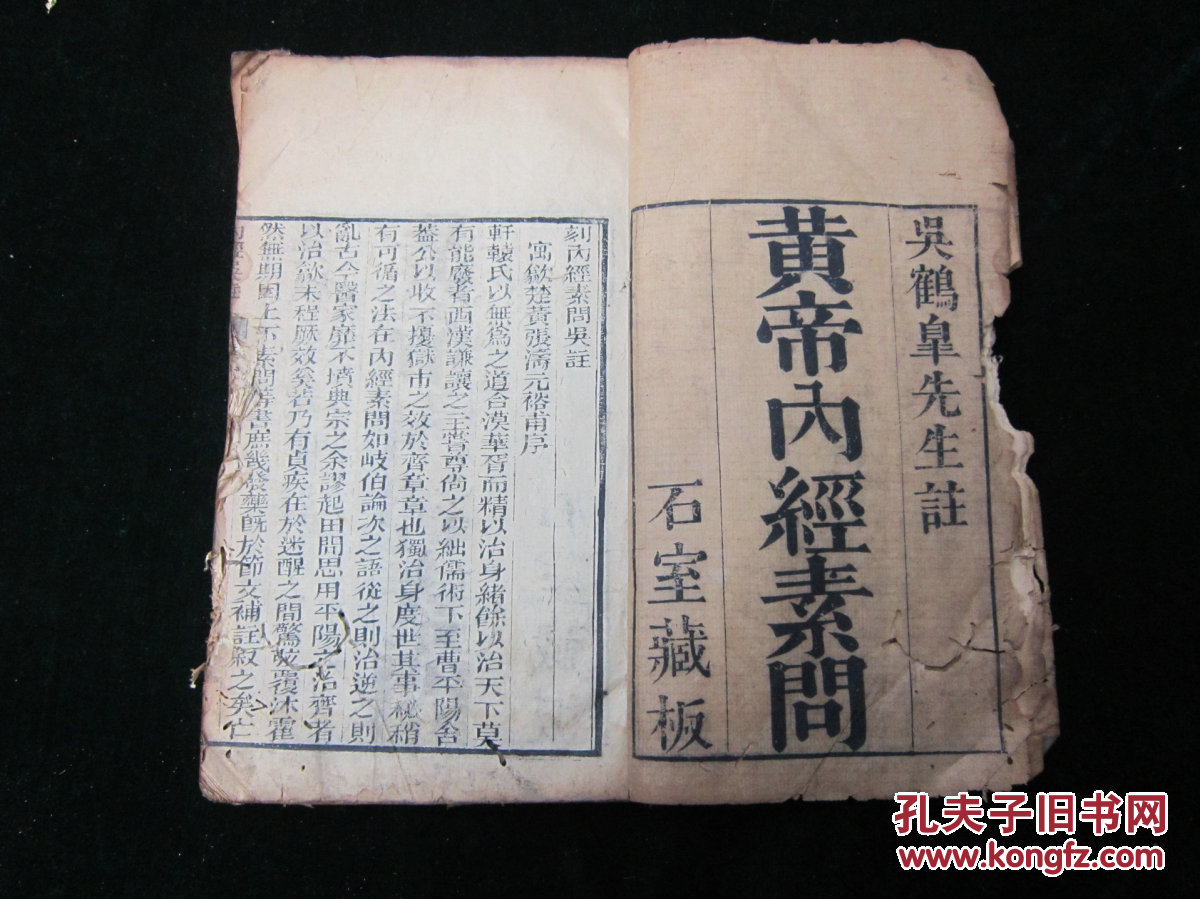 吳鶴皐先生註
黃帝內經素問
石室藏板
刻內經素問吳註
寓歙楚黃張濤元裕甫序
軒轅氏以無爲之道合漠華胥而精以治身緒餘以治天下莫
有能廢者西漢謙讓之主嘗尊尚之以絀儒術下至曹平陽舍
葢公以收不擾獄市之效於齊章章也獨治身度世其事秘稍
有可循之法在內經素問如岐伯論次之語從之則治逆之則
亂古今醫家靡不墳典宗之余謬起田間思用平陽之治齊者
以治歙未程厥效奚若乃有貞疾在於迷醒之間驚
然無期因上下素問 書庶幾發藥旣於節文補註叙之矣亡
孔夫子旧书网
www.kongfz.com